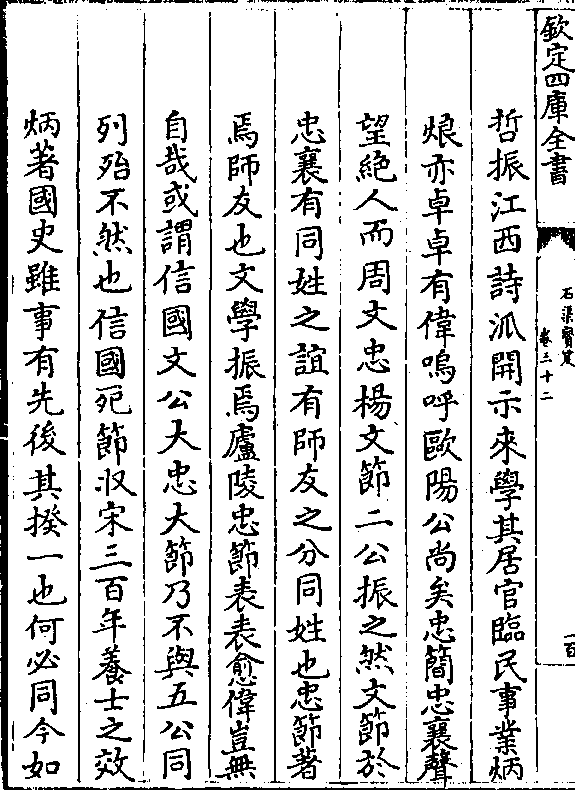 欽定四庫全書
石渠寶笈
卷三十二
一百
哲振江西詩派開示來學其居官臨民事業炳
烺亦卓卓有偉嗚呼歐陽公尚矣忠簡忠襄聲
望絶人而周文忠楊文節二公振之然文節於
忠襄有同姓之誼有師友之分同姓也忠節著
焉師友也文學振焉廬陵忠節表表愈偉豈無
自哉或謂信國文公大忠大節乃不與五公同
列殆不然也信國死節収宋三百年養士之效
炳著國史雖事有先後其揆一也何必同今如